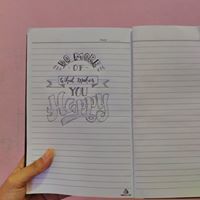 DO MORE
OF
What Makes
YOU
HAPPY